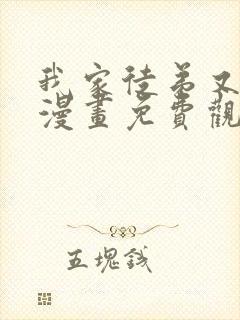 我家徒弟又
漫畫免費觀
五塊錢